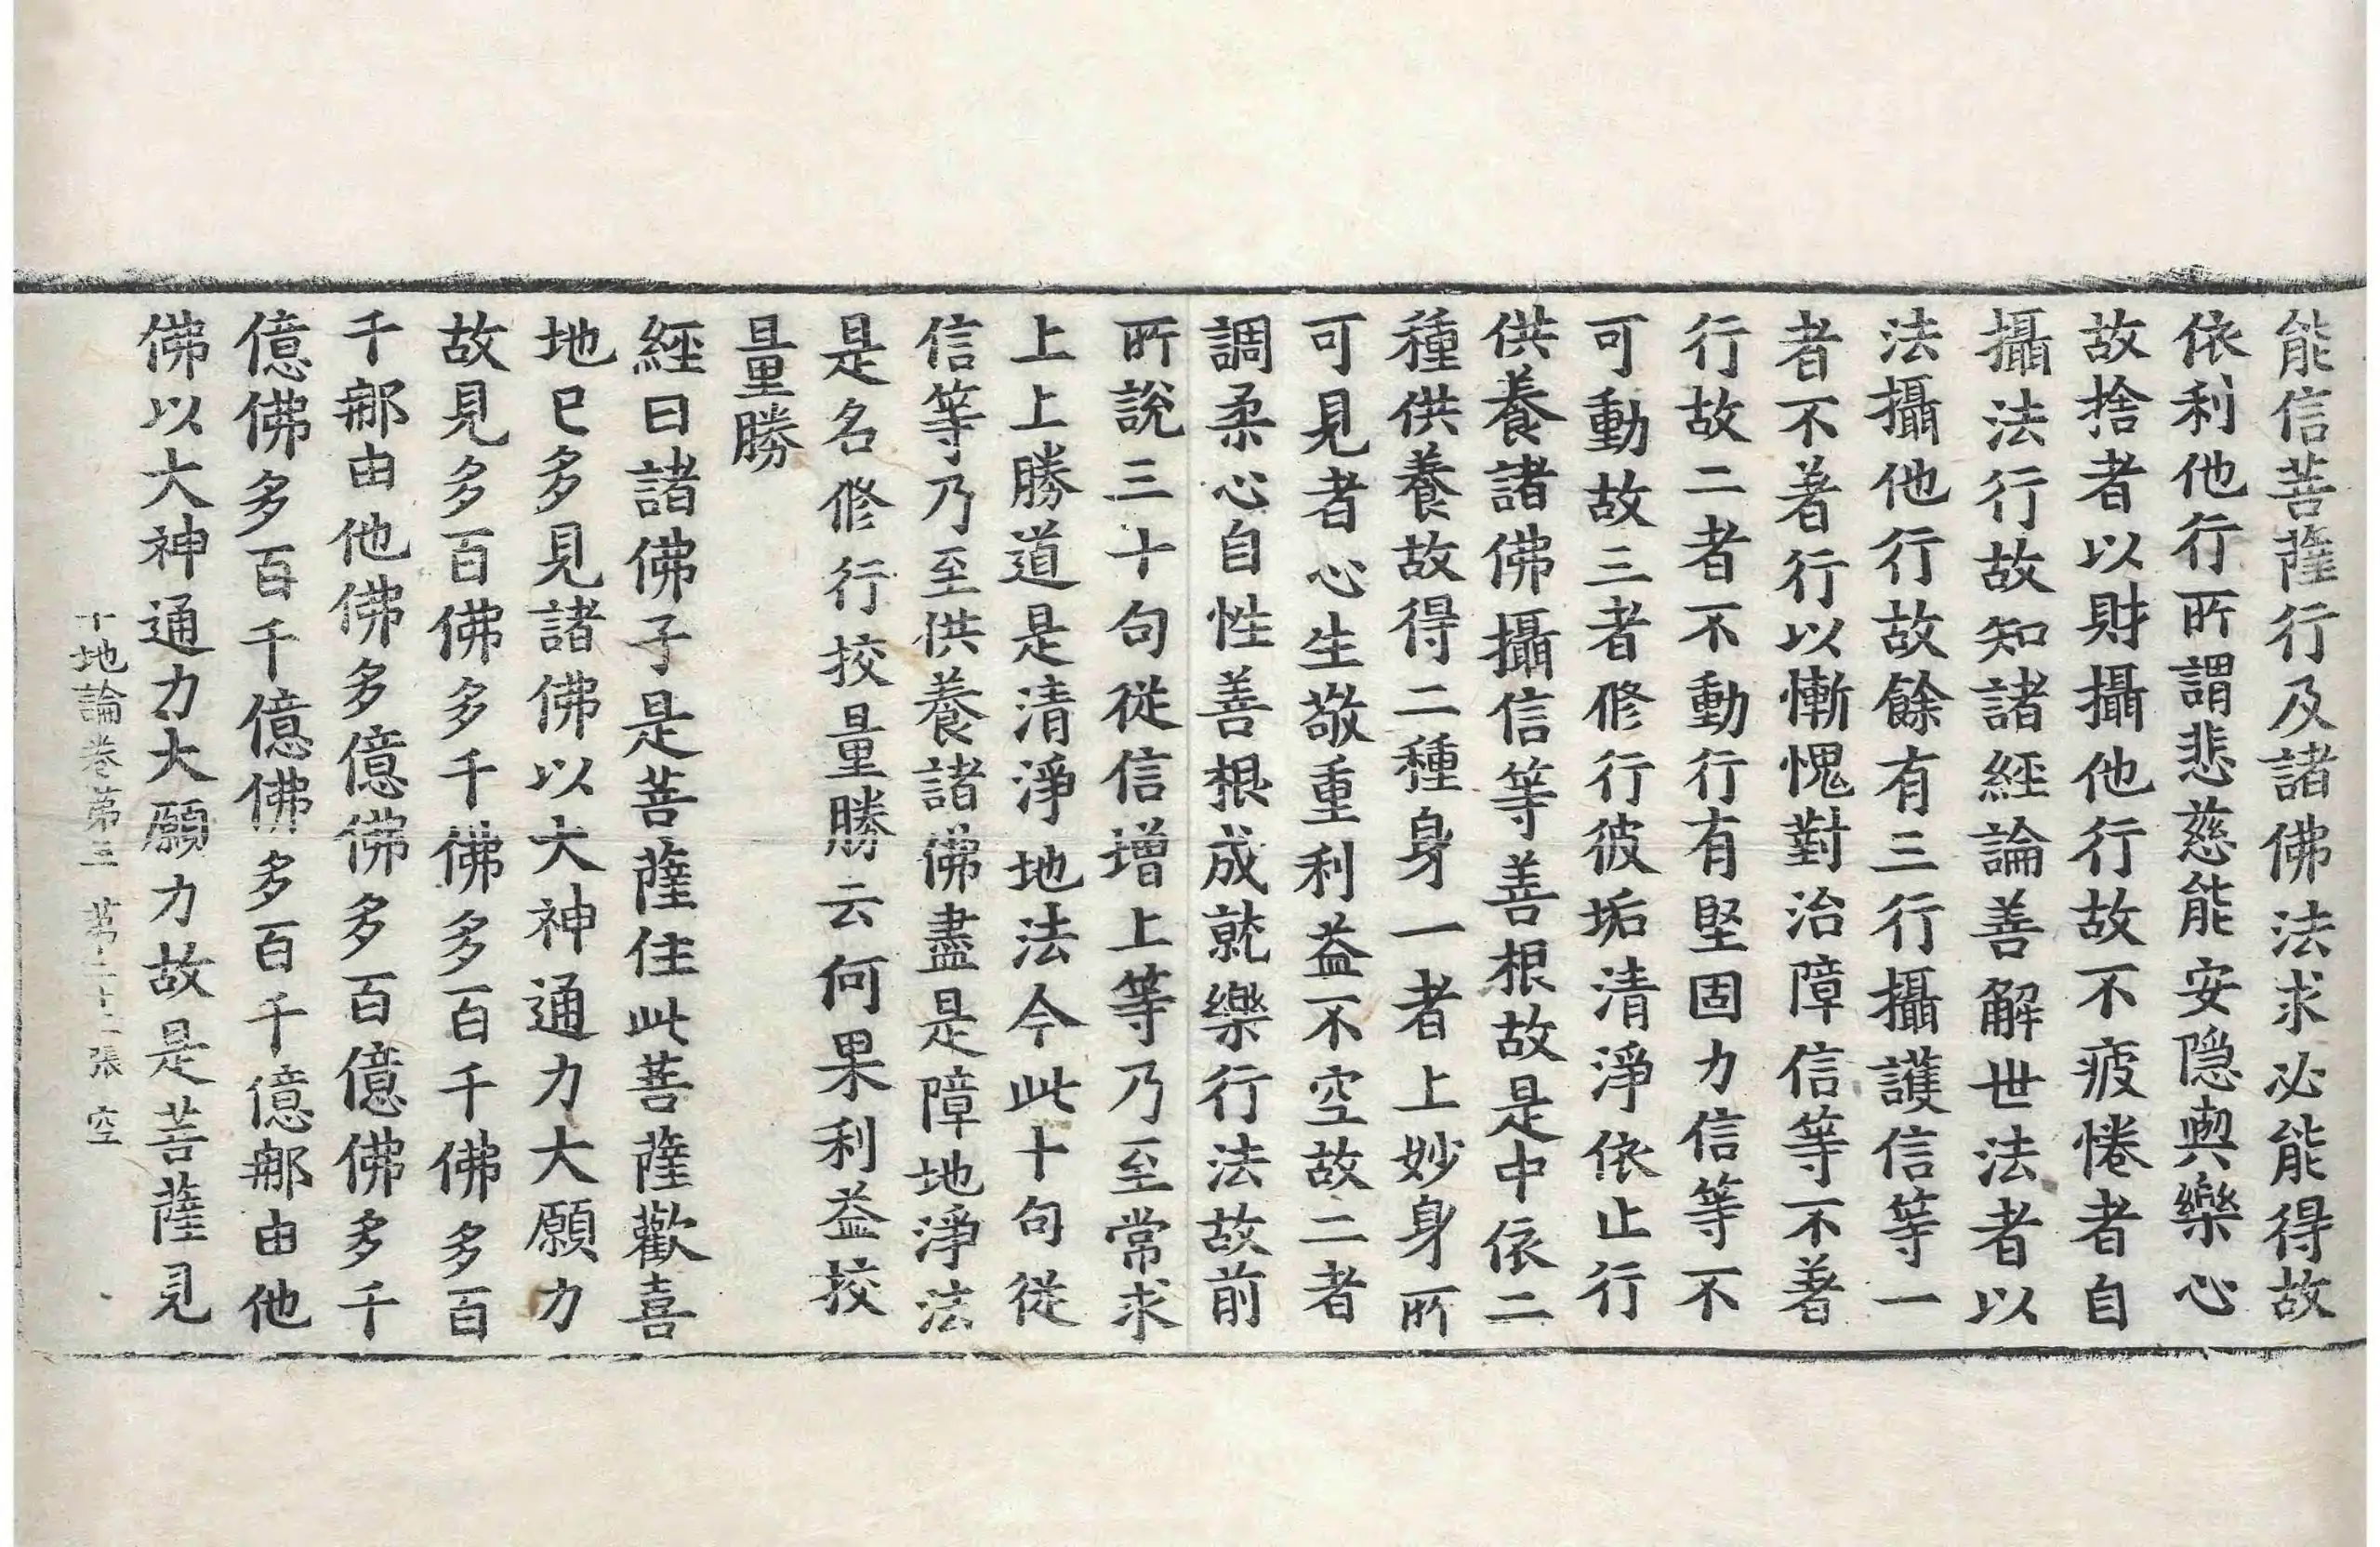 能信菩薩行及諸佛法求必能得故
依利他行所謂悲慈能安隱與樂心
故捨者以財攝他行故不疲惓者自
攝法行故知諸經論善解世法者以
法攝他行故餘有三行攝護信等一
者不著行以慚愧對治障信等不著
行故二者不動行有堅固力信等不
可動故三者修行彼垢清淨依止行
供養諸佛攝信等善根故是中依二
種供養故得二種身一者上妙身所
可見者心生敬重利益不空故二者
調柔心自性善根成就樂行法故前
所說三十句從信增上等乃至常求
上上勝道是清淨地法今此十句從
信等乃至供養諸佛盡是障地淨法
是名修行挍量勝云何果利益挍
量勝
經曰諸佛子是菩薩住此菩薩歡喜
地已多見諸佛以大神通力大願力
故見多百佛多千佛多百千佛多百
千那由他佛多億佛多百億佛多千
億佛多百千億佛多百千億那由他
佛以大神通力大願力故是菩薩見
十地論卷第三 第二十二張 空